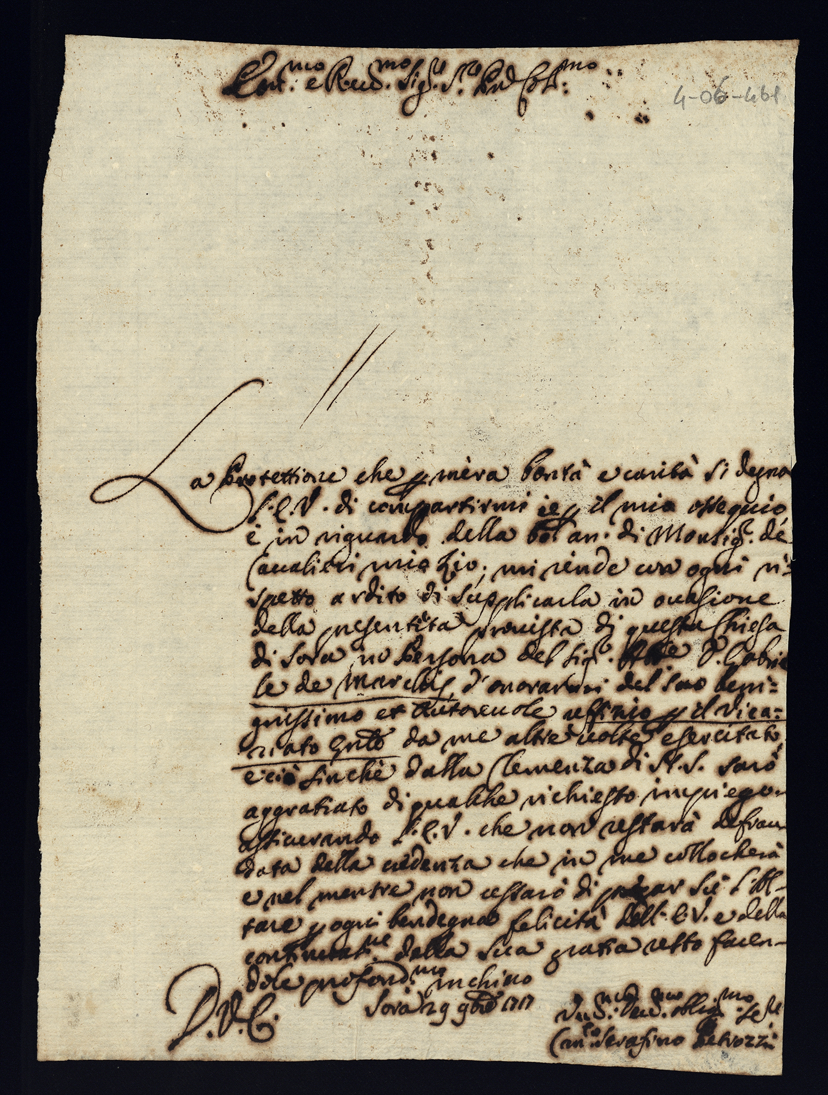 Em.mo e R.mo Sig.r S.r Pad. Col.mo
4-06-461
La Protettione che p mera bontà e carità si degna
l'E.V. di compartirmi ie p il mio ossequio
è in riguardo della di Monsig.r de
Cavalieri mio Zio, mi rende con ogni ri-
spetto ardito di supplicarla in occasione
della presentita provista di questa Chiesa
di Sora in Persona del Sig.r D. Gabrie
le de Marchis, d'onorarmi del suo beni-
gnissimo et autorevole offizio p il Vica-
riato Gnle da me altre volte esercitato
e ciò sinchè dalla Clemenza di S.S. sarò
aggratiato di qualche richiesto impiego.
assicurando l'E.V. che non restarà defrau
data della credenza che in me collocherà
e nel mentre non cessarò di pregar Sig.
p ogni bendegna felicità dell'E.V. e della
continuat.ne della sua gratia resto facen-
dole profond.mo inchino
Sora 29 9bre 1717
D.V.E.
Um.mo Dev.mo oblig.mo Se.re
Serafino Petrozzi